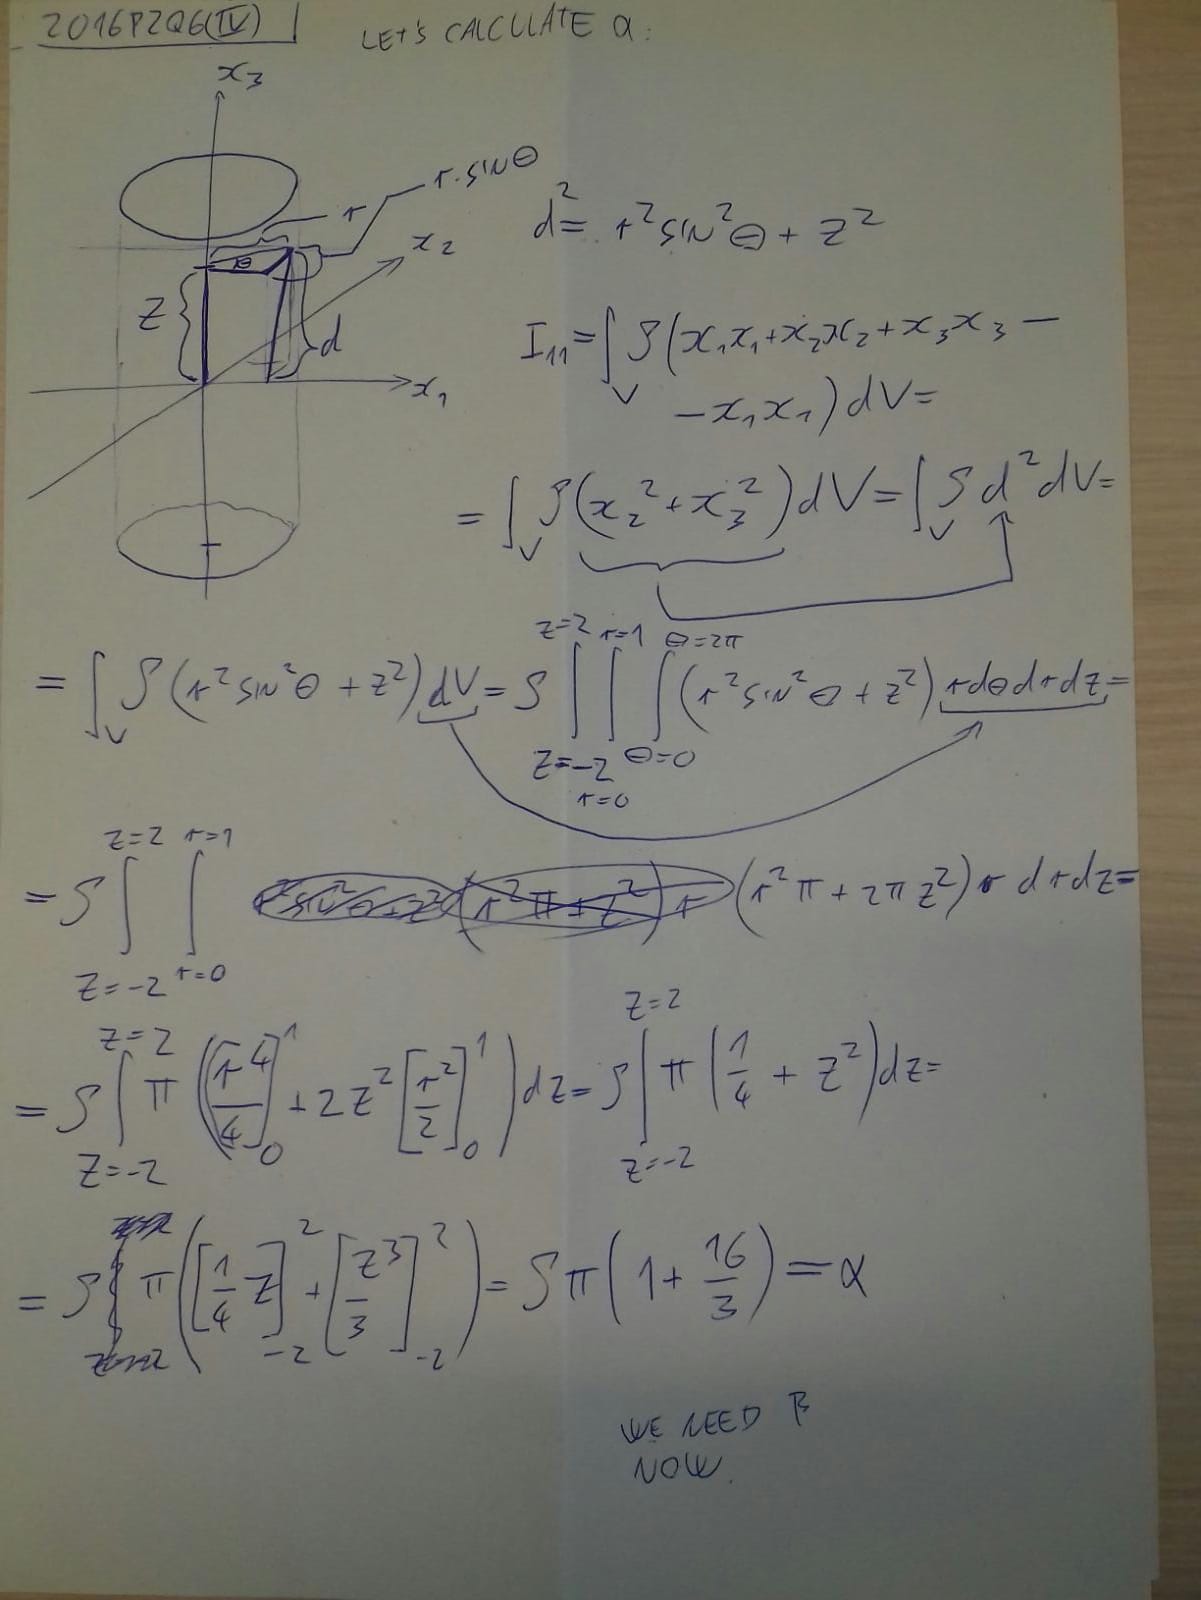 2016P2Q6(IV)
LET'S CALCULATE α:
x₃
r·SINθ
r
x₂
θ
z
d
x₁
d² = r² SIN²θ + z²
I₁₁ = ∫_V ρ(x₁x₁ + x₂x₂ + x₃x₃ −
− x₁x₁) dV =
= ∫_V ρ(x₂² + x₃²) dV = ∫_V ρ d² dV =
= ∫_V ρ(r² SIN²θ + z²) dV = ρ ∫_{z=-2}^{z=2} ∫_{r=0}^{r=1} ∫_{θ=0}^{θ=2π} (r² SIN²θ + z²) r dθ dr dz =
= ρ ∫_{z=-2}^{z=2} ∫_{r=0}^{r=1} (r²π + 2πz²) r dr dz =
= ρ ∫_{z=-2}^{z=2} π ([r⁴/4]₀¹ + 2z² [r²/2]₀¹) dz = ρ ∫_{z=-2}^{z=2} π (1/4 + z²) dz =
= ρ π ([1/4 z]₋₂² + [z³/3]₋₂²) = ρπ (1 + 16/3) = α
WE NEED β
NOW.